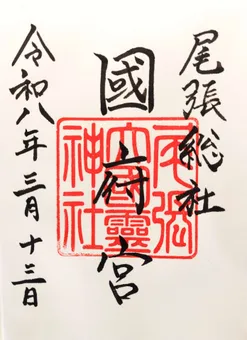 尾張総社
國府宮
尾張大國霊神社
令和八年三月十三日